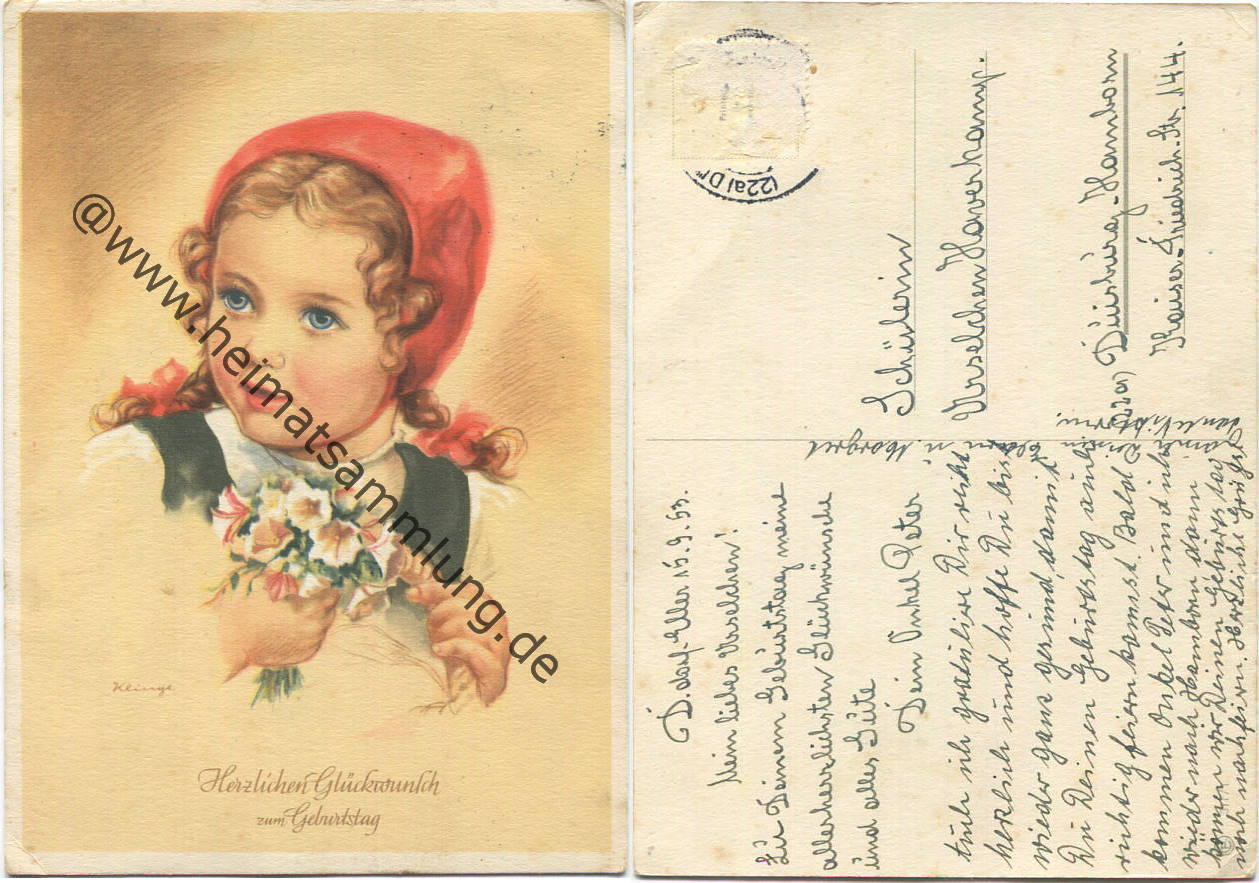 @www.heimatsammlung.de
Klinge
Herzlichen Glückwunsch
zum Geburtstag
(22a) D
Schülerin
Urselchen Haverkamp.
(22a) Duisburg-Hamborn
Kaiser-Friedrich-Str. 144.
D.dorf-Eller 15.9.53.
Mein liebes Urselchen!
Zu Deinem Geburtstag meine
allerherzlichsten Glückwünsche
und alles Gute
Dein Onkel Peter
tuhe ich gratuliere Dir recht
herzlich und hoffe Du bist
wieder ganz gesund, damit
Du Deinen Geburtstag auch
richtig feiern kannst. Bald
kommen Onkel Peter und ich
wieder nach Hamborn dann
können wir Deinen Geburtstag
noch nachfeiern. Herzliche Grüße
Deine
u. Margret